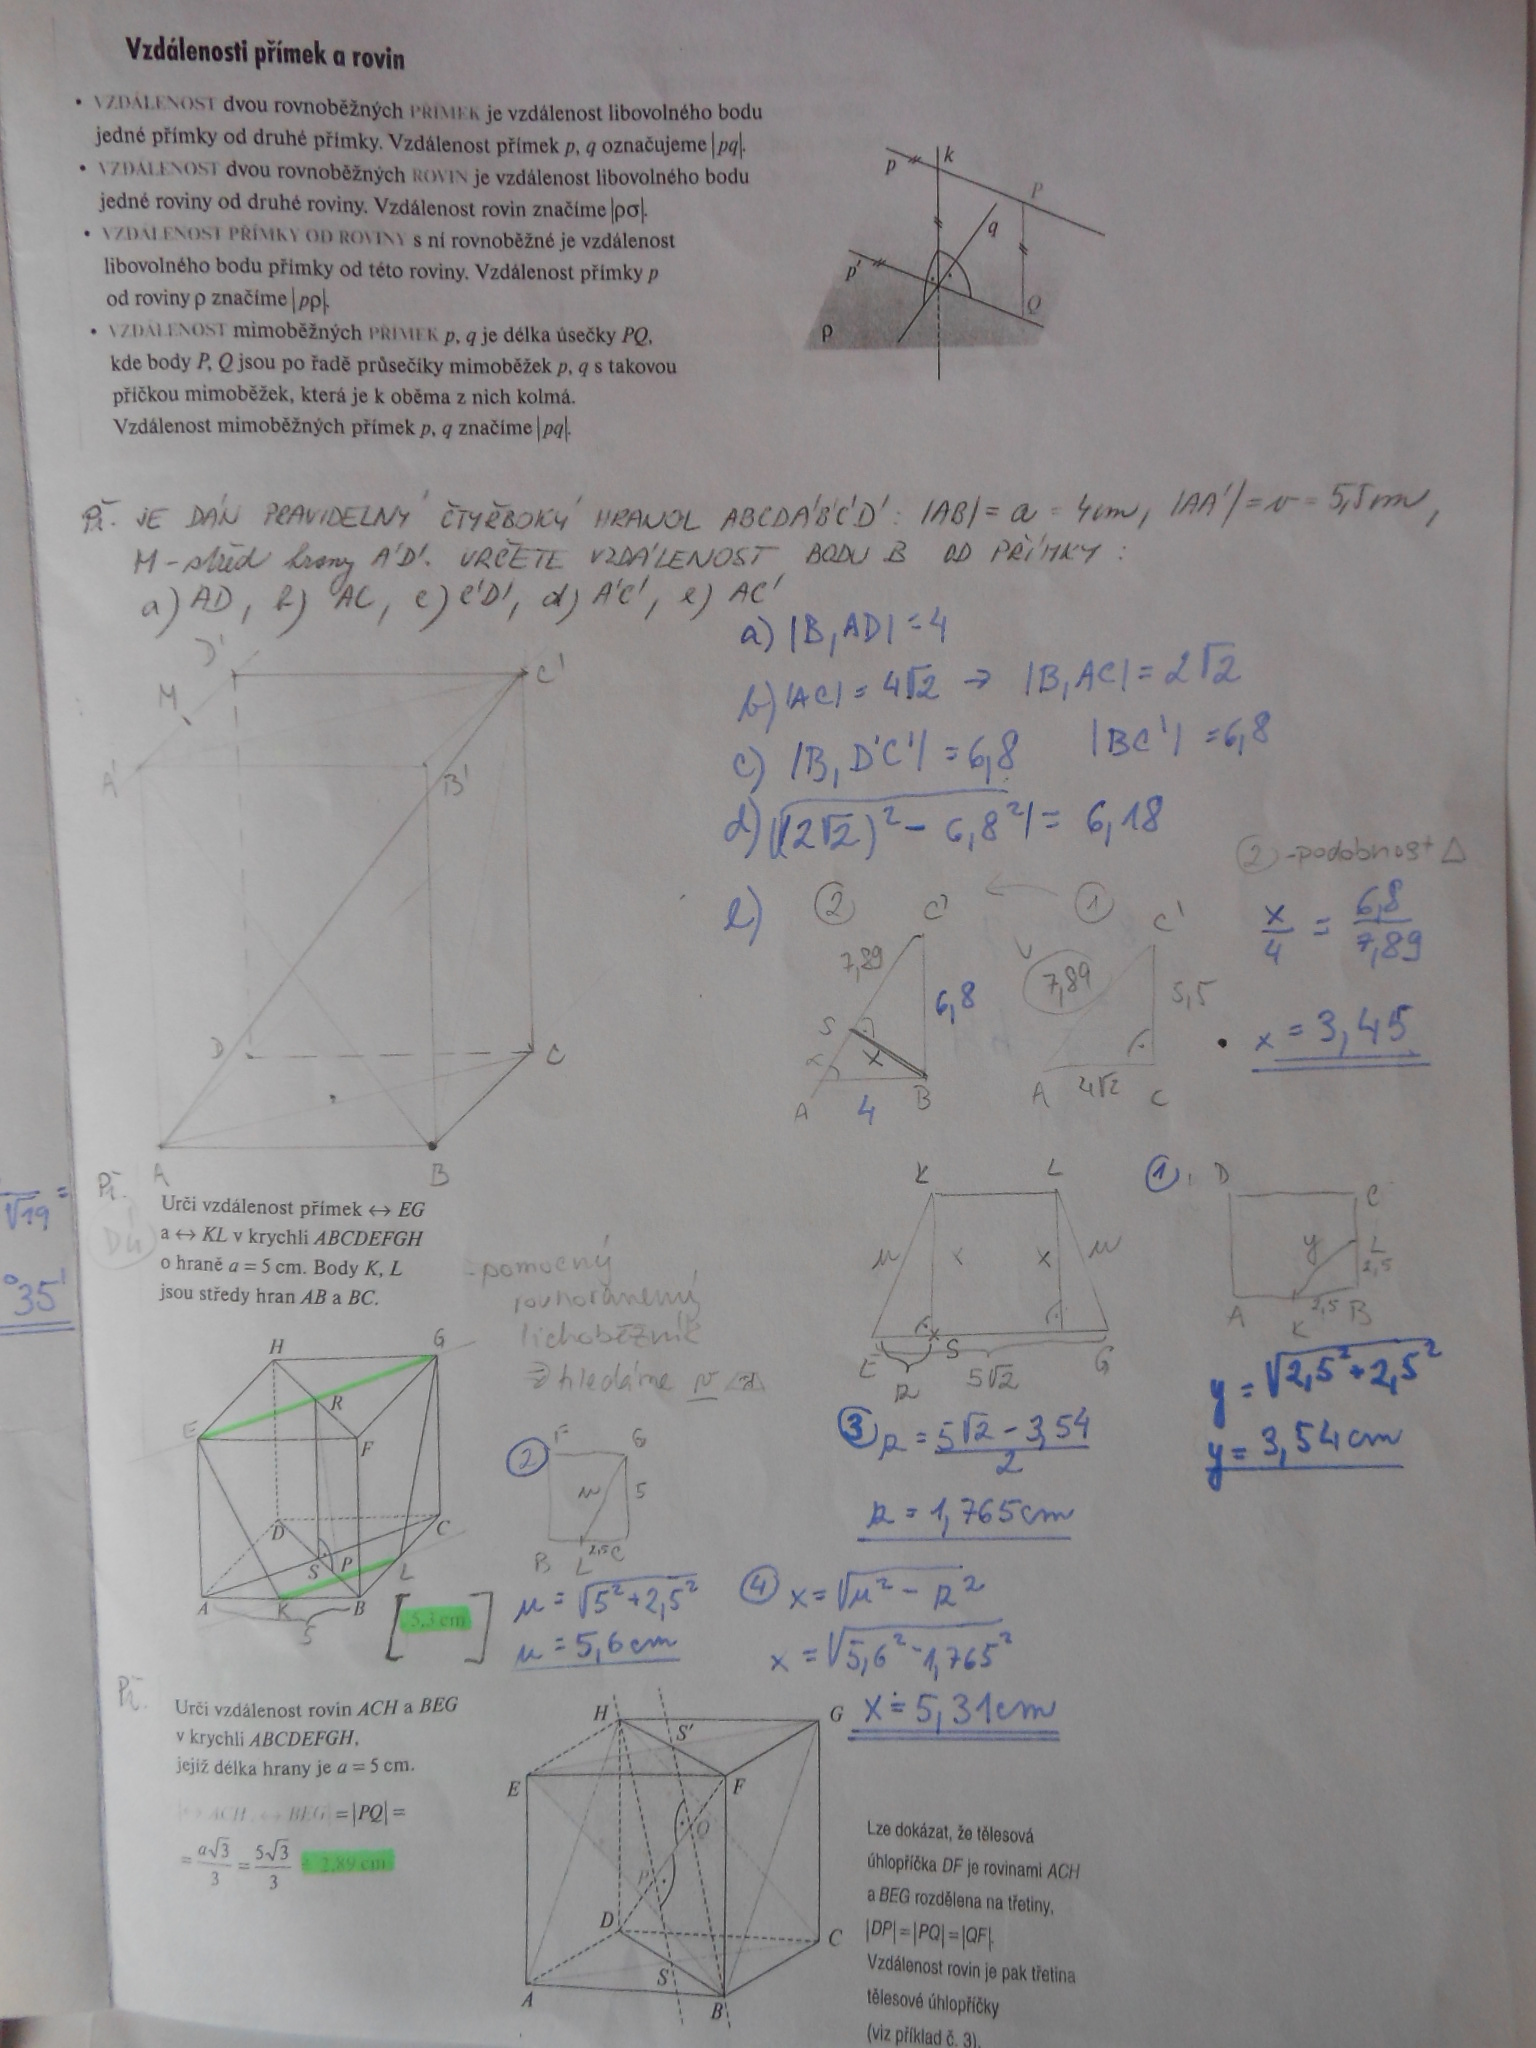 Vzdálenosti přímek a rovin
• VZDÁLENOST dvou rovnoběžných PŘÍMEK je vzdálenost libovolného bodu
jedné přímky od druhé přímky. Vzdálenost přímek p, q označujeme |pq|.
• VZDÁLENOST dvou rovnoběžných ROVIN je vzdálenost libovolného bodu
jedné roviny od druhé roviny. Vzdálenost rovin značíme |ρσ|.
• VZDÁLENOST PŘÍMKY OD ROVINY s ní rovnoběžné je vzdálenost
libovolného bodu přímky od této roviny. Vzdálenost přímky p
od roviny ρ značíme |pρ|.
• VZDÁLENOST mimoběžných PŘÍMEK p, q je délka úsečky PQ,
kde body P, Q jsou po řadě průsečíky mimoběžek p, q s takovou
příčkou mimoběžek, která je k oběma z nich kolmá.
Vzdálenost mimoběžných přímek p, q značíme |pq|.
p
k
P
q
p'
Q
ρ
Př. JE DÁN PRAVIDELNÝ ČTYŘBOKÝ HRANOL ABCDA'B'C'D': |AB| = a = 4cm, |AA'| = v = 5,5cm,
M - střed hrany A'D'. URČETE VZDÁLENOST BODU B OD PŘÍMKY:
a) AD, b) AC, c) C'D', d) A'C', e) AC'
D'
C'
M
A'
B'
D
C
A
B
a) |B, AD| = 4
b) |AC| = 4√2 → |B, AC| = 2√2
c) |B, D'C'| = 6,8 |BC'| = 6,8
d) √|(2√2)² - 6,8²| = 6,18
e)
② ← ①
C'
7,89
6,8
S
x
α
A
4
B
C'
v
7,89
5,5
A
4√2
C
② - podobnost △
x/4 = 6,8/7,89
x = 3,45
√19 =
°35'
Př.
DÚ
Urči vzdálenost přímek ↔ EG
a ↔ KL v krychli ABCDEFGH
o hraně a = 5 cm. Body K, L
jsou středy hran AB a BC.
- pomocný
rovnoramenný
lichoběžník
⇒ hledáme v
H
G
R
E
F
D
C
S
P
L
A
K
B
5
[5,3 cm]
K
L
u
x
x
u
E
S
G
z
5√2
①
D
C
y
L
2,5
A
K
2,5
B
y = √2,5² + 2,5²
y = 3,54 cm
②
F
G
u
5
B
L
2,5
C
u = √5² + 2,5²
u = 5,6 cm
③ z = 5√2 - 3,54 / 2
z = 1,765 cm
④ x = √u² - z²
x = √5,6² - 1,765²
x ≐ 5,31 cm
Př.
Urči vzdálenost rovin ACH a BEG
v krychli ABCDEFGH,
jejíž délka hrany je a = 5 cm.
|↔ ACH, ↔ BEG| = |PQ| =
= a√3/3 = 5√3/3 = 2,89 cm
H
S'
G
E
F
Q
P
D
C
S
A
B
Lze dokázat, že tělesová
úhlopříčka DF je rovinami ACH
a BEG rozdělena na třetiny,
|DP| = |PQ| = |QF|.
Vzdálenost rovin je pak třetina
tělesové úhlopříčky
(viz příklad č. 3).